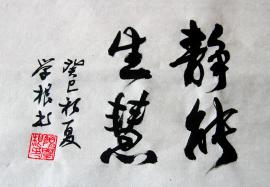 静能
生慧
癸巳初夏
学根书